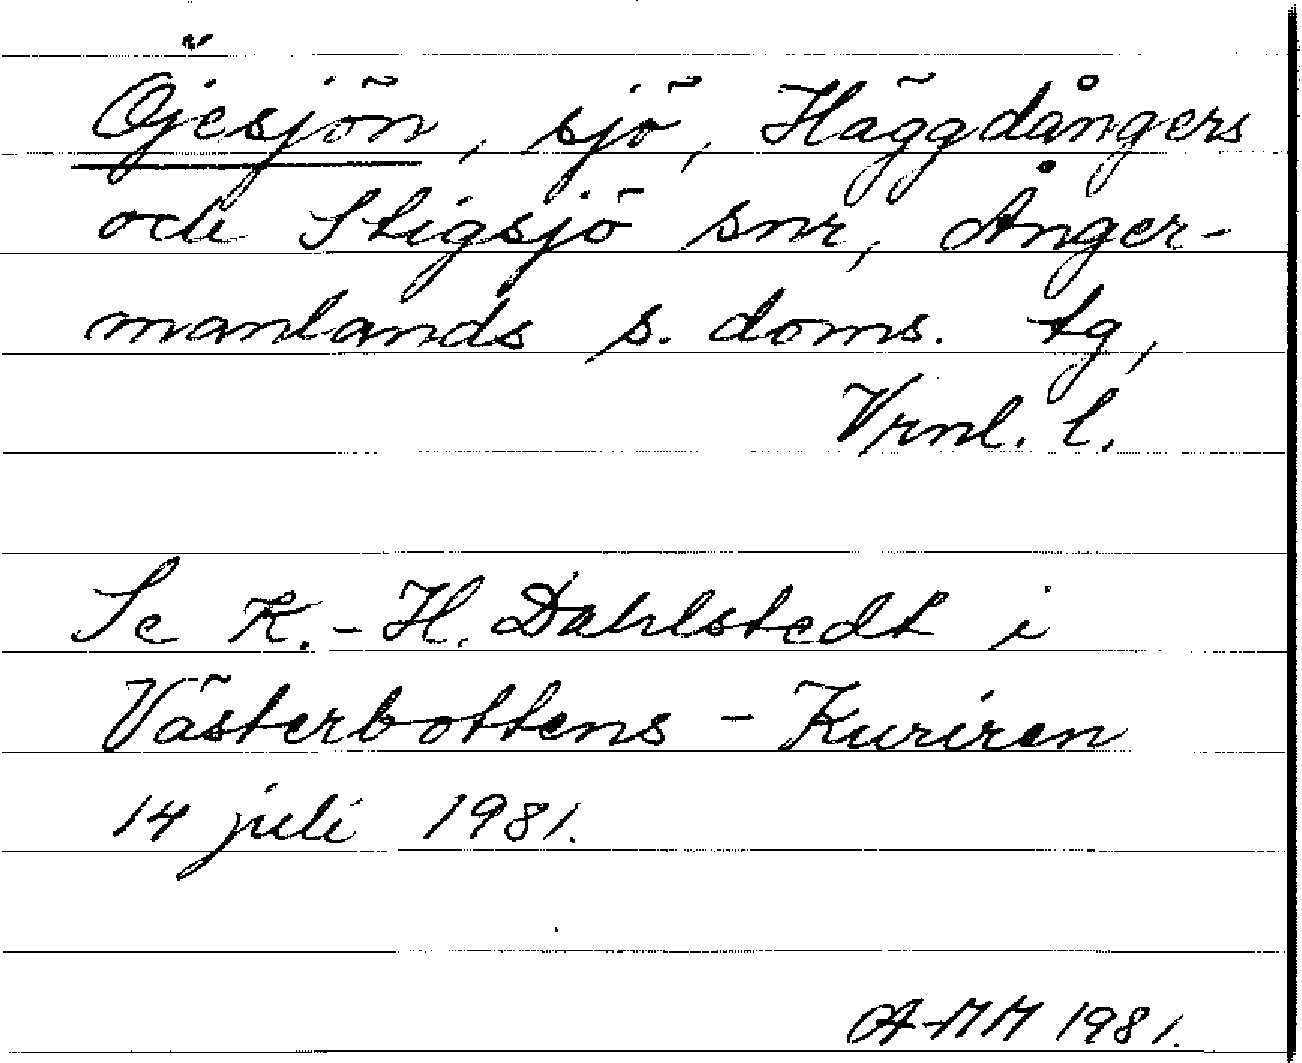 Öjesjön, sjö, Häggdångers
och Stigsjö snr, Ånger-
manlands s. doms. tg,
Vrnl. l.
Se K.-H. Dahlstedt i
Västerbottens-Kuriren
14 juli 1981.
A-MM 1981.